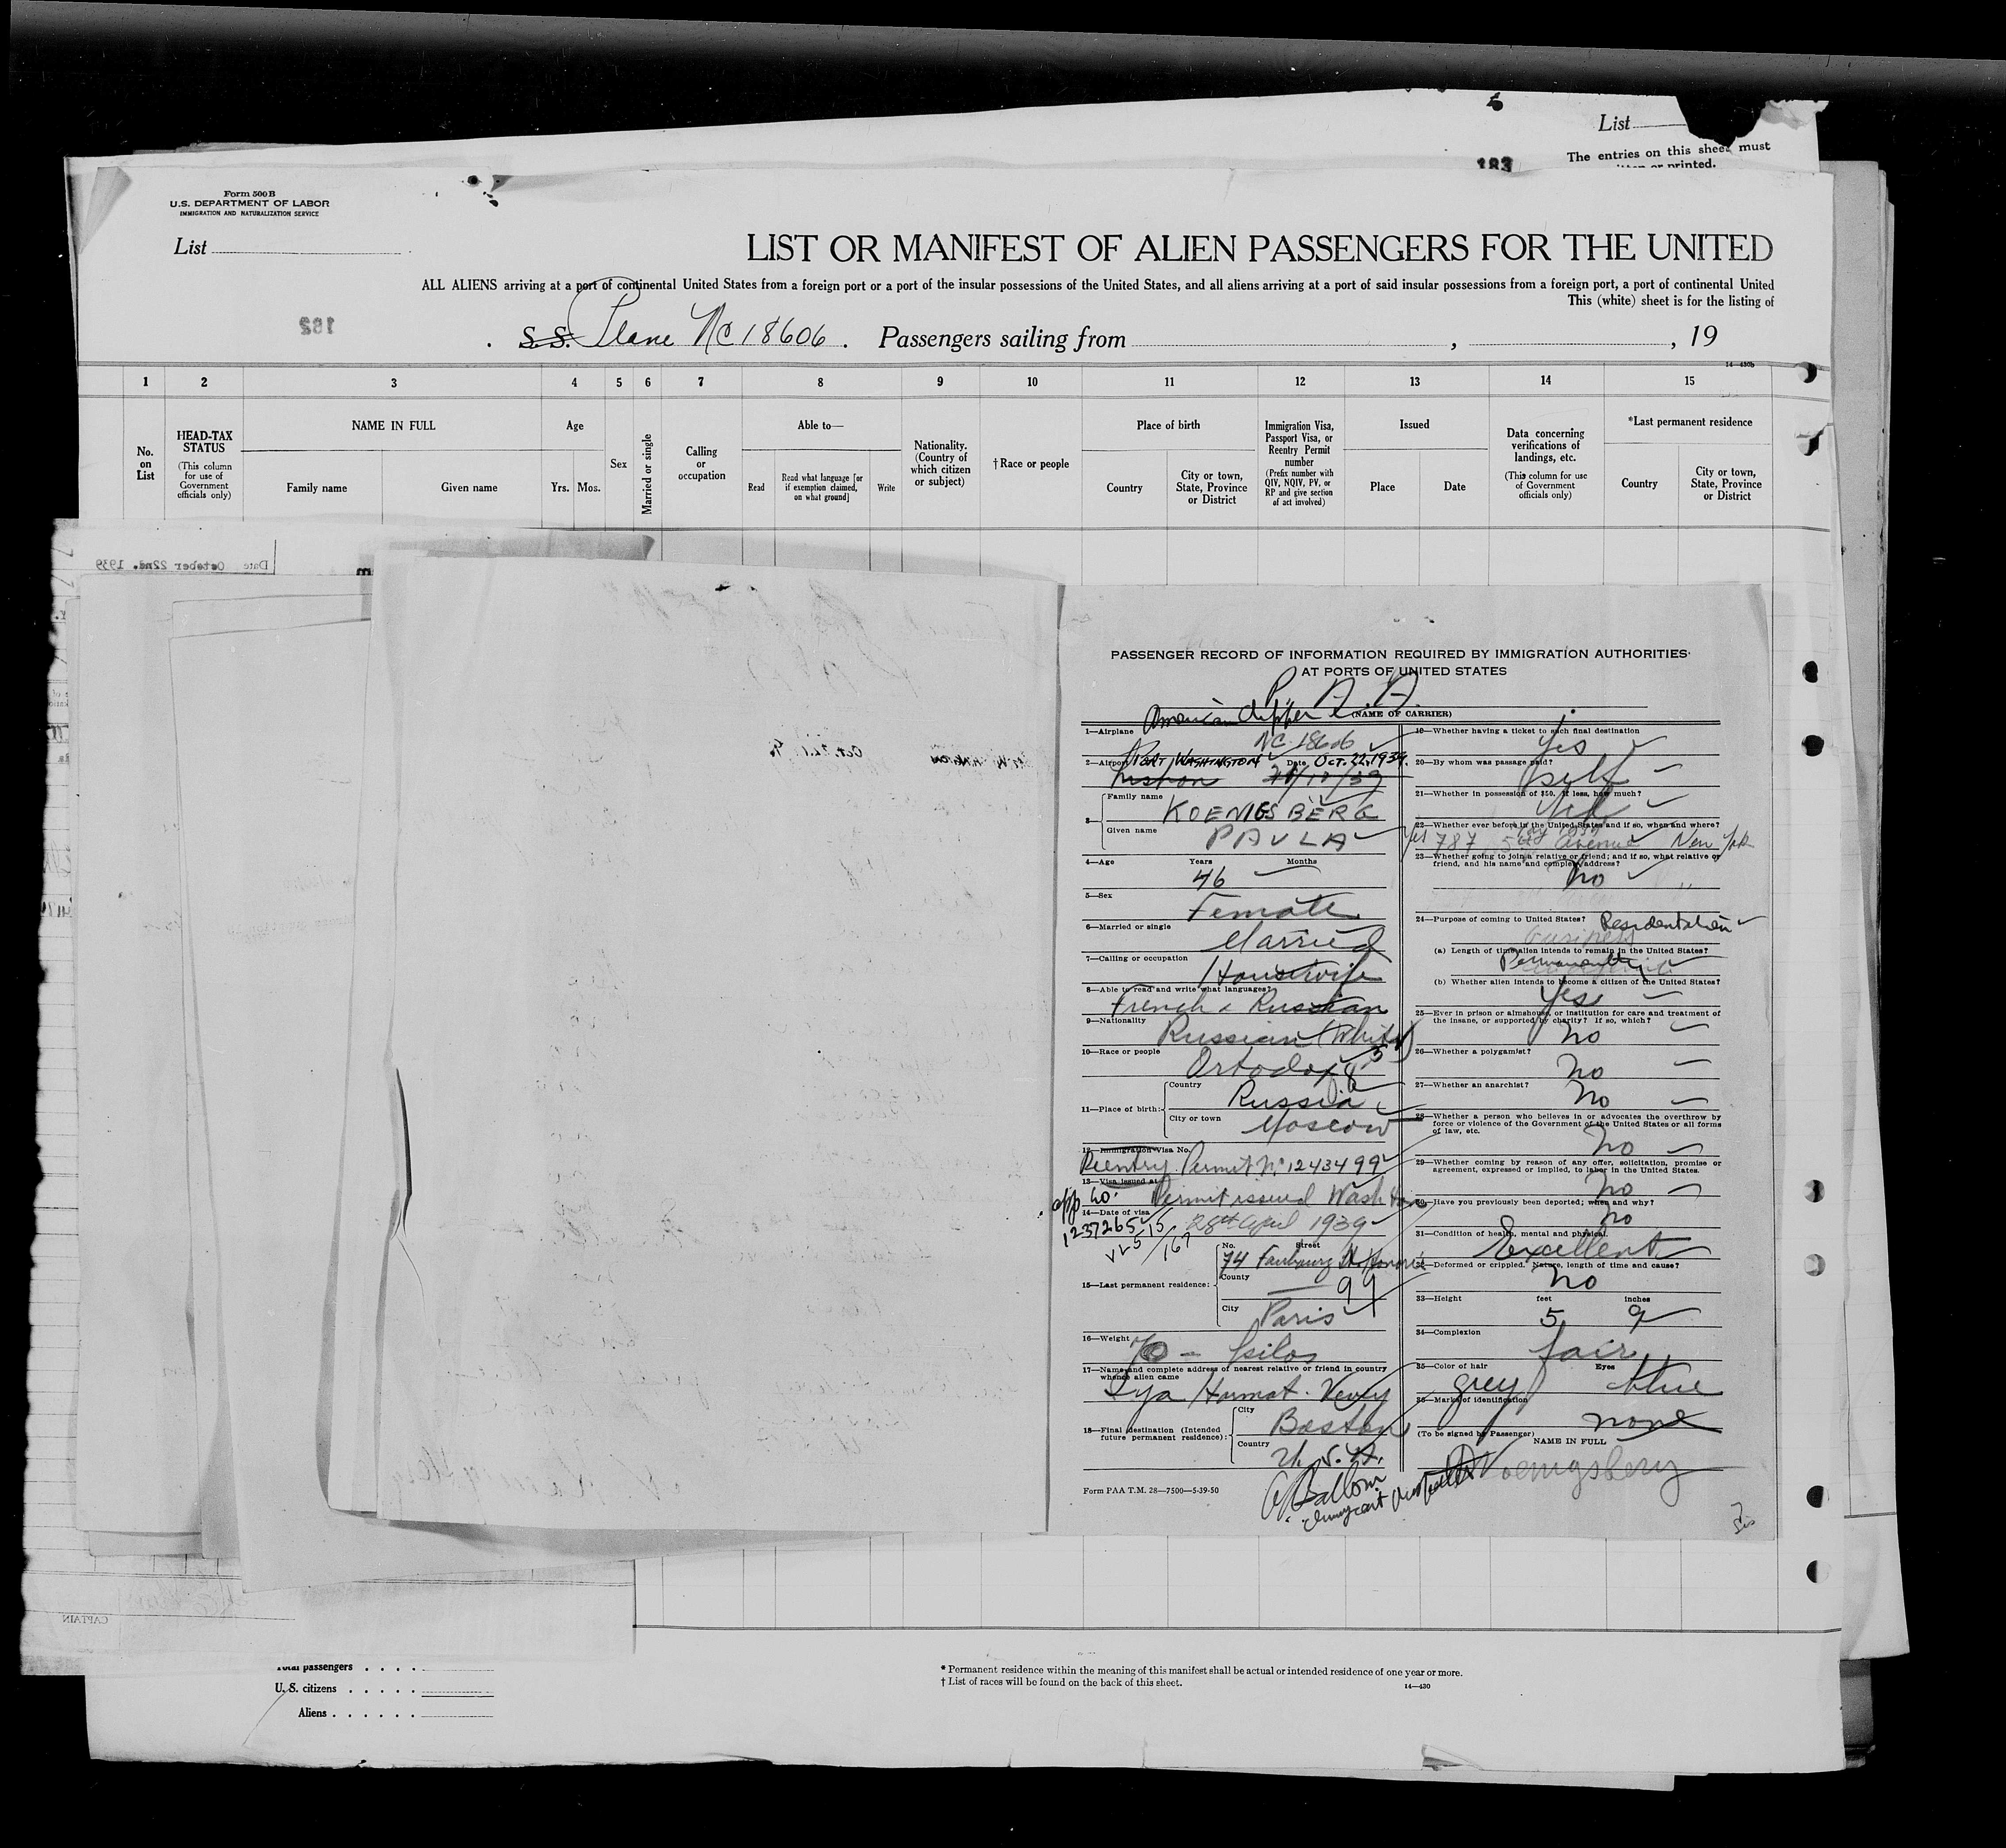 List
183
The entries on this sheet must
or printed.
Form 500 B
U.S. DEPARTMENT OF LABOR
IMMIGRATION AND NATURALIZATION SERVICE
List
LIST OR MANIFEST OF ALIEN PASSENGERS FOR THE UNITED
ALL ALIENS arriving at a port of continental United States from a foreign port or a port of the insular possessions of the United States, and all aliens arriving at a port of said insular possessions from a foreign port, a port of continental United
This (white) sheet is for the listing of
182
S.S. Plane NC 18606. Passengers sailing from , , 19
14—430b
1 2 3 4 5 6 7 8 9 10 11 12 13 14 15
No. on List
HEAD-TAX STATUS
(This column for use of Government officials only)
NAME IN FULL
Family name Given name
Age
Yrs. Mos.
Sex
Married or single
Calling or occupation
Able to—
Read
Read what language [or if exemption claimed, on what ground]
Write
Nationality. (Country of which citizen or subject)
† Race or people
Place of birth
Country
City or town, State, Province or District
Immigration Visa, Passport Visa, or Reentry Permit number
(Prefix number with QIV, NQIV, PV, or RP and give section of act involved)
Issued
Place Date
Data concerning verifications of landings, etc.
(This column for use of Government officials only)
*Last permanent residence
Country
City or town, State, Province or District
Date October 22nd. 1939
PASSENGER RECORD OF INFORMATION REQUIRED BY IMMIGRATION AUTHORITIES
AT PORTS OF UNITED STATES
P. A. A.
(NAME OF CARRIER)
1—Airplane American Clipper
NC 18606
2—Airport PORT WASHINGTON Date OCT. 22, 1939.
Lisbon
3— Family name KOENIGSBERG
Given name PAVLA
4—Age Years Months
46
5—Sex
Female
6—Married or single
Married
7—Calling or occupation
Housewife
8—Able to read and write what languages?
French & Russian
9—Nationality
Russian (White)
10—Race or people
Ortodox
11—Place of birth: Country Russia
City or town Moscow
12—Immigration Visa No.
Reentry Permit No 1243499
13—Visa issued at
Permit issued Washton
app no.
14—Date of visa
1237265 28th April 1939
15—Last permanent residence: No. Street
74 Faubourg St Honoré
County
99
City Paris
16—Weight
70 - kilos
17—Name and complete address of nearest relative or friend in country whence alien came
18—Final destination (Intended future permanent residence): City Boston
Country U.S.A.
Form PAA T.M. 28—7500—5-39-50
19—Whether having a ticket to such final destination
Yes
20—By whom was passage paid?
Self
21—Whether in possession of $50. If less, how much?
Yes
22—Whether ever before in the United States and if so, when and where?
Yes 787 5th Avenue New York
23—Whether going to join a relative or friend; and if so, what relative or friend, and his name and complete address?
No
24—Purpose of coming to United States? Residentation
business
(a) Length of time alien intends to remain in the United States?
Permanently
(b) Whether alien intends to become a citizen of the United States?
Yes
25—Ever in prison or almshouse, or institution for care and treatment of the insane, or supported by charity? If so, which?
No
26—Whether a polygamist?
No
27—Whether an anarchist?
No
28—Whether a person who believes in or advocates the overthrow by force or violence of the Government of the United States or all forms of law, etc.
No
29—Whether coming by reason of any offer, solicitation, promise or agreement, expressed or implied, to labor in the United States.
No
30—Have you previously been deported; when and why?
No
31—Condition of health, mental and physical.
Excellent
32—Deformed or crippled. Nature, length of time and cause?
No
33—Height feet inches
5 9
34—Complexion
fair
35—Color of hair Eyes
grey blue
36—Marks of identification
none
(To be signed by Passenger)
NAME IN FULL
Koenigsberg
Immigrant Inspector
CAPTAIN
Total passengers
U.S. citizens
Aliens
* Permanent residence within the meaning of this manifest shall be actual or intended residence of one year or more.
† List of races will be found on the back of this sheet.
14—430